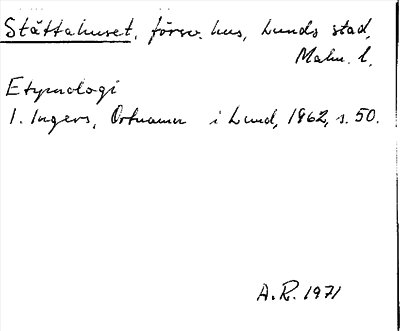 Ståttahuset, försv. hus, Lunds stad,
Malm. l.
Etymologi
I. Ingers, Ortnamn i Lund, 1962, s. 50.
A.R. 1971